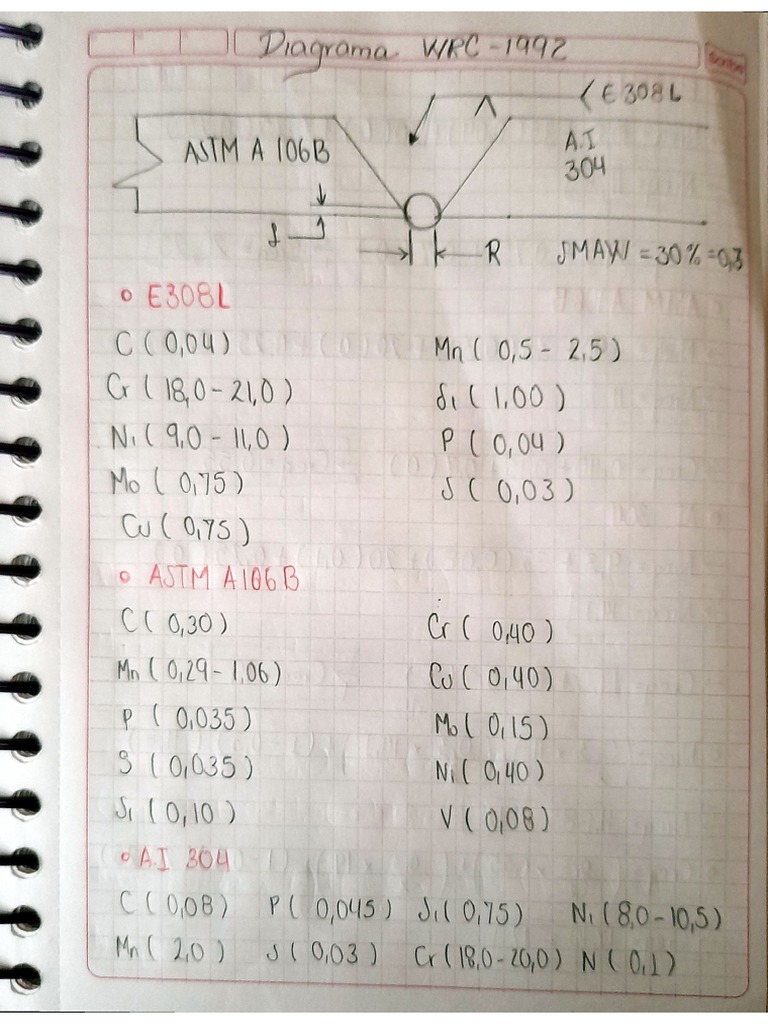 Diagrama WRC-1992
E308L
ASTM A 106B
A.I
304
f
R
SMAW = 30% = 0,3
• E308L
C (0,04) Mn (0,5 - 2,5)
Cr (18,0 - 21,0) Si (1,00)
Ni (9,0 - 11,0) P (0,04)
Mo (0,75) S (0,03)
Cu (0,75)
• ASTM A106B
C (0,30) Cr (0,40)
Mn (0,29 - 1,06) Cu (0,40)
P (0,035) Mo (0,15)
S (0,035) Ni (0,40)
Si (0,10) V (0,08)
• A.I 304
C (0,08) P (0,045) Si (0,75) Ni (8,0 - 10,5)
Mn (2,0) S (0,03) Cr (18,0 - 20,0) N (0,1)